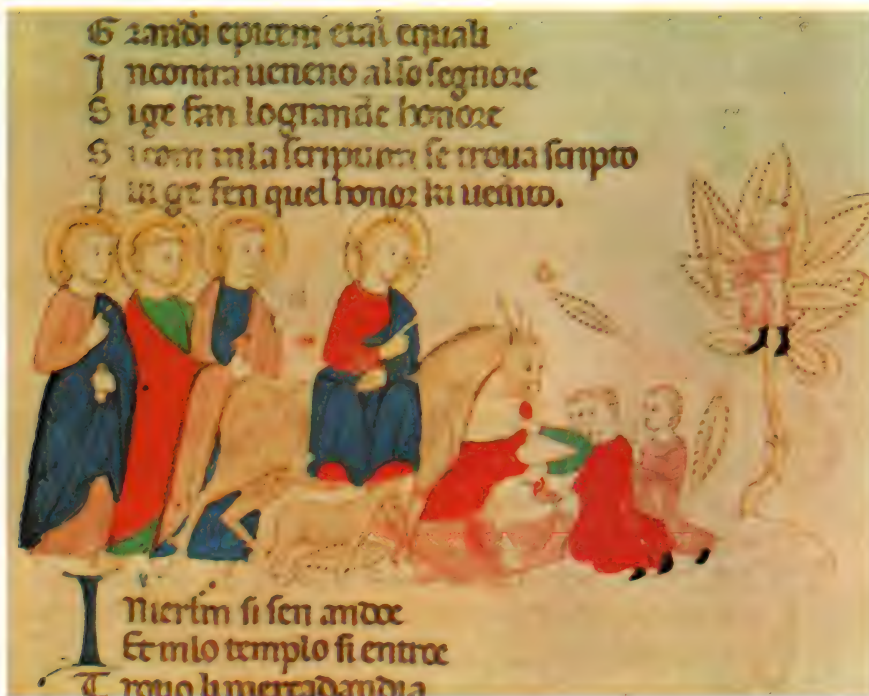 Grandi epiceni etai equali
Incontra ueneno al so segnore
Si ge fan lo grande honore
Si com in la scriptura se troua scripto
I in ge fen quel honor
In ierlm si sen andoe
Et in lo templo si entroe
Trouo li mercadandia